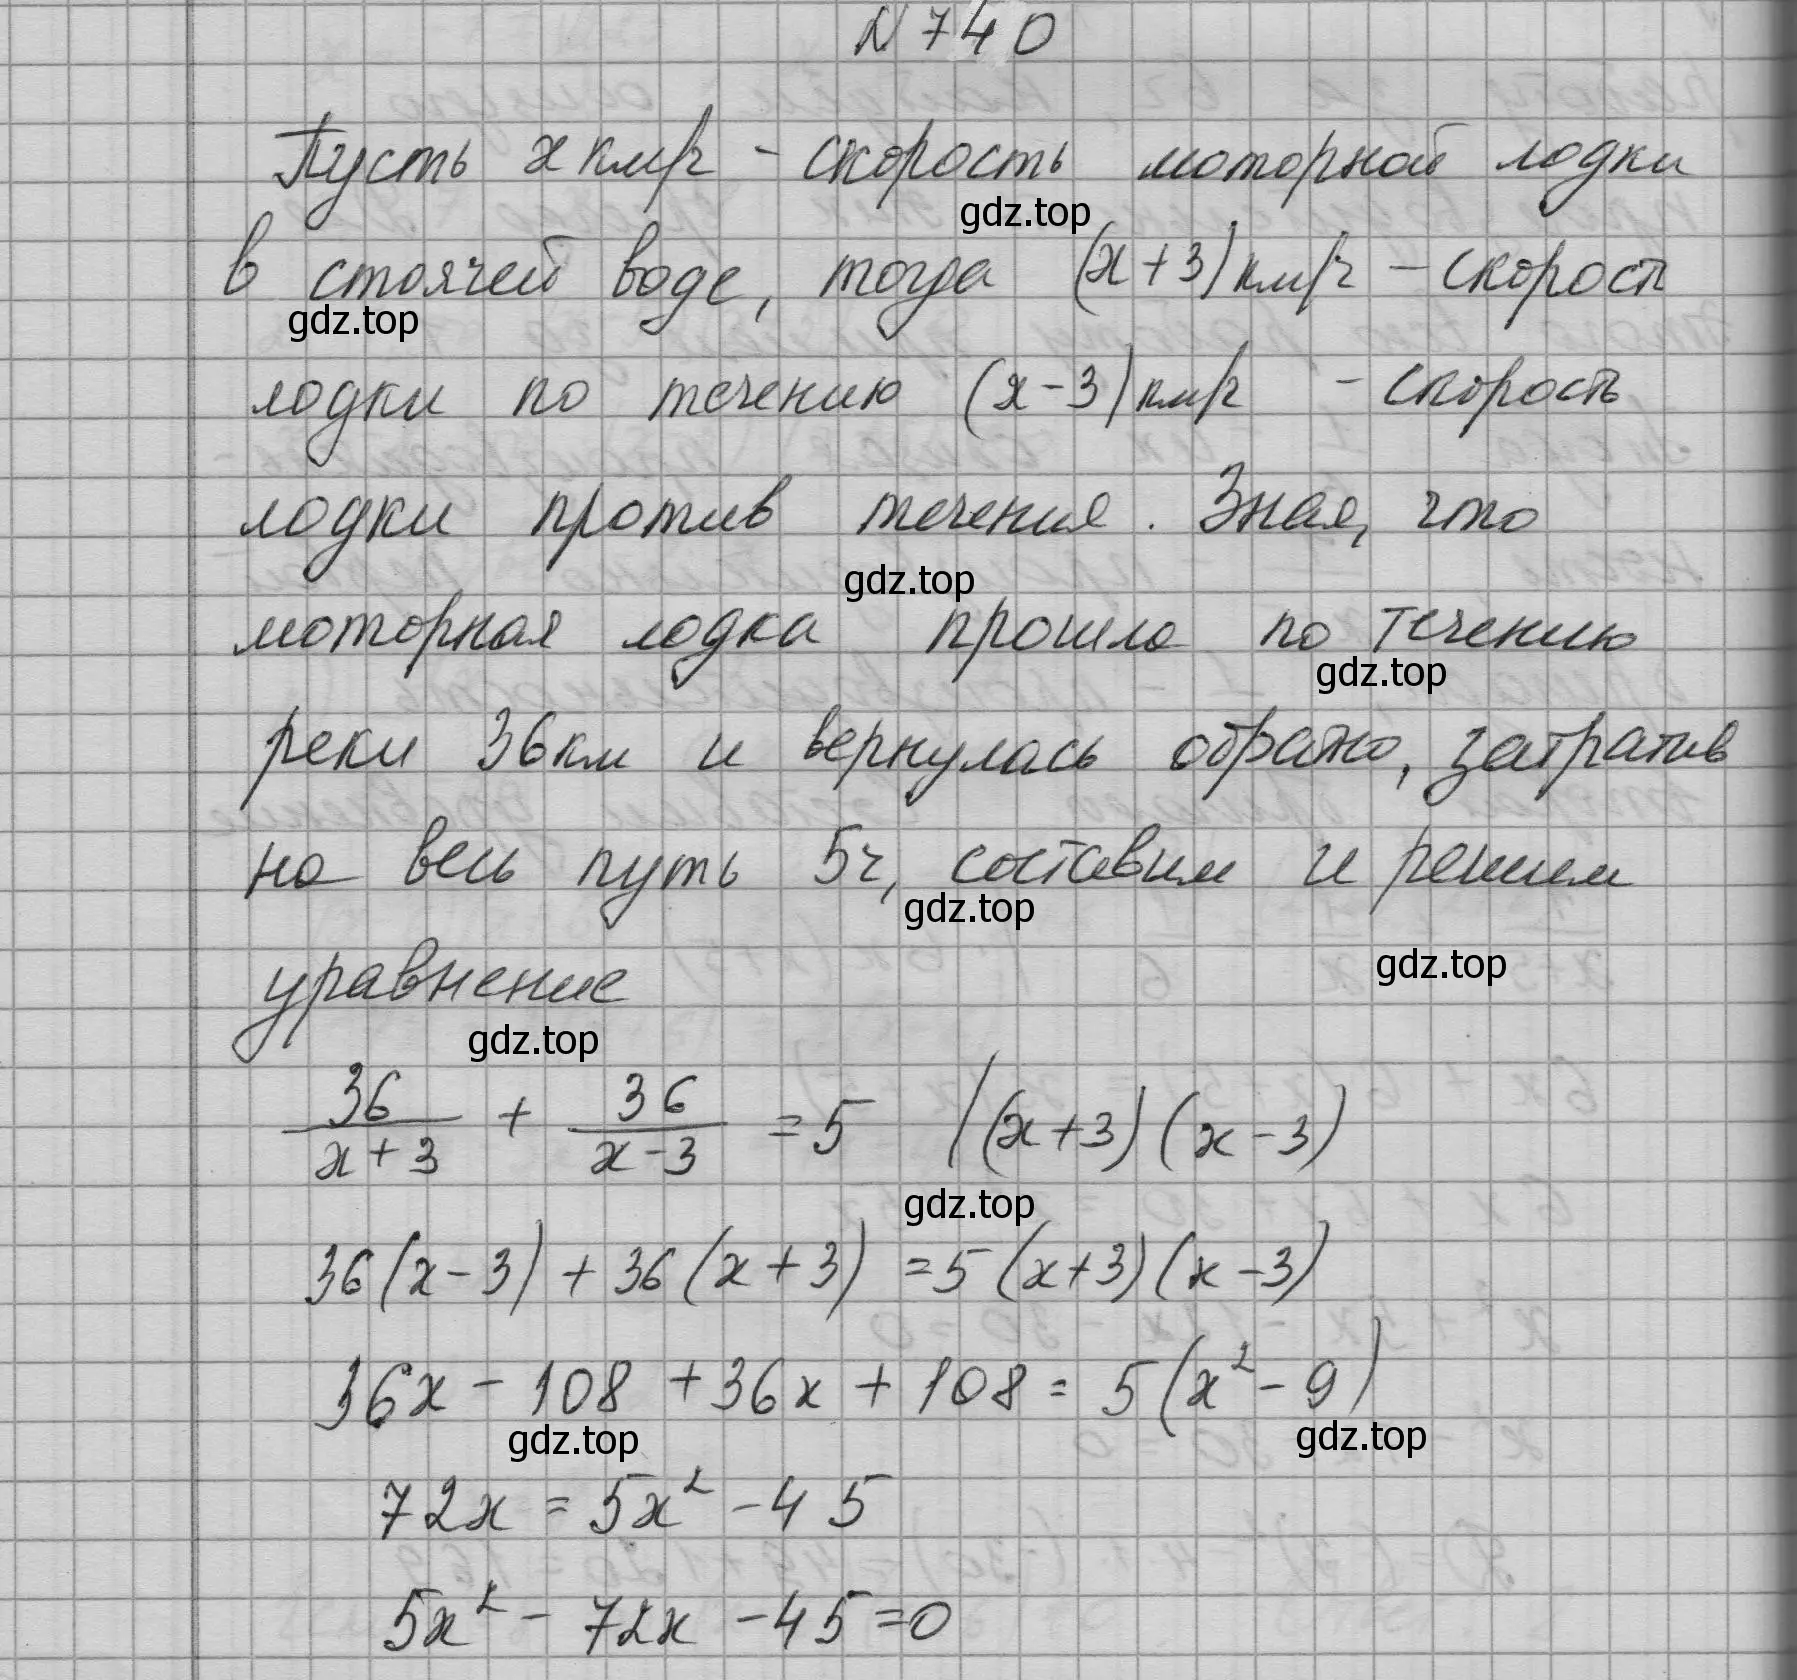 N 740
Пусть x км/ч - скорость моторной лодки
gdz.top
в стоячей воде, тогда (x+3) км/ч - скорость
gdz.top
лодки по течению (x-3) км/ч - скорость
лодки против течения. Зная, что
gdz.top
моторная лодка прошла по течению
gdz.top
реки 36 км и вернулась обратно, затратив
на весь путь 5ч, составим и решим
gdz.top
gdz.top
уравнение
gdz.top
36/(x+3) + 36/(x-3) = 5 |(x+3)(x-3)
gdz.top
36(x-3)+36(x+3) =5(x+3)(x-3)
36x-108+36x+108=5(x²-9)
gdz.top gdz.top
72x=5x²-45
5x²-72x-45=0